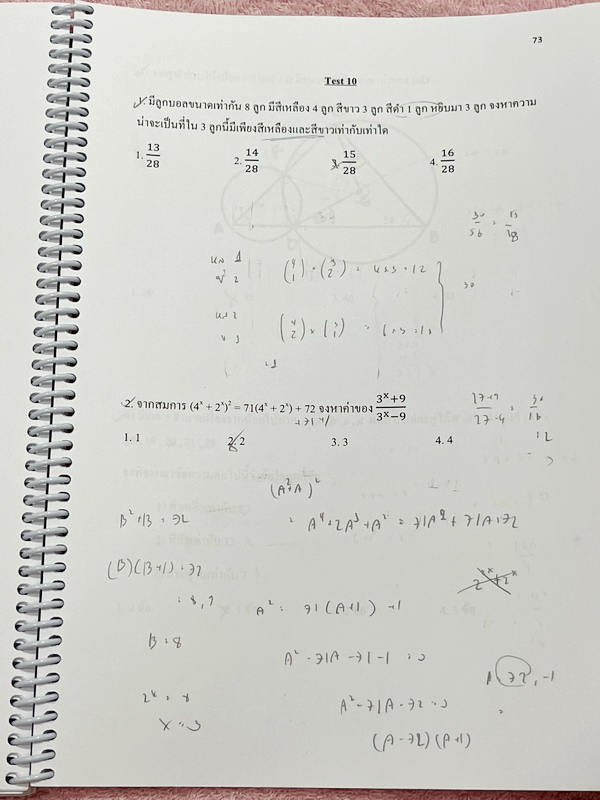 73
Test 10
1. มีลูกบอลขนาดเท่ากัน 8 ลูก มีสีเหลือง 4 ลูก สีขาว 3 ลูก สีดำ 1 ลูก หยิบมา 3 ลูก จงหาความ
น่าจะเป็นที่ใน 3 ลูกนี้มีเพียงสีเหลืองและสีขาวเท่ากับเท่าใด
1. 13/28 2. 14/28 3. 15/28 4. 16/28
30/56 = 15/28
(4 1) × (3 2) = 4×3 = 12
30
(4 2) × (3 1)
2. จากสมการ (4ˣ + 2ˣ)² = 71(4ˣ + 2ˣ) + 72 จงหาค่าของ (3ˣ+9)/(3ˣ−9)
1. 1 2. 2 3. 3 4. 4
27+9
(A²+A)²
B²+B = 72
= A⁴+2A³+A² = 71A²+71A+72
(B)(B+1) = 72
= 8, 9
A² = 71(A+1) +1
B = 8
A² - 71A - 71 - 1 = 0
72, -1
2ˣ = 8
A² - 71A - 72 = 0
x = 3
(A-72)(A+1)